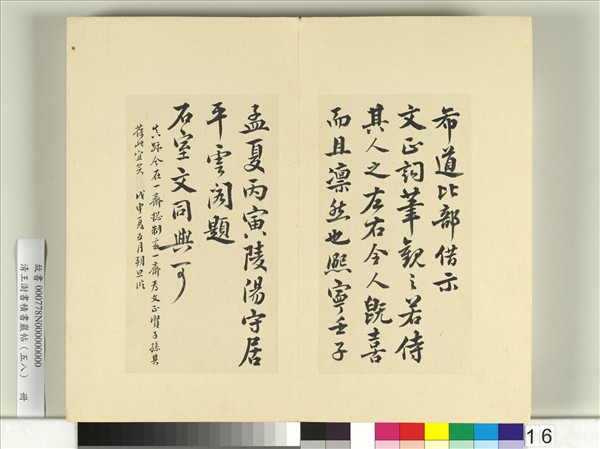 希道比部借示
文正詞筆觀之若侍
其人之左右令人既喜
而且凛然也熙寧壬子
孟夏丙寅陵陽守居
平雲閣題
石室文同與可
真跡今在一齋總制家一齋乃文正賢子孫其
葆此宜矣 戊申夏五月朔旦
故書 000778N000000000
清王澍書積書巖帖(五八) 冊
16